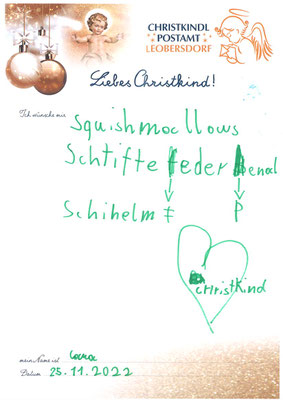 CHRISTKINDL
POSTAMT
LEOBERSDORF
Liebes Christkind!
Ich wünsche mir
Squishmocllows
Schtifte feder penal
Schihelm F P
christkind
mein Name ist
Datum 25.11.2022